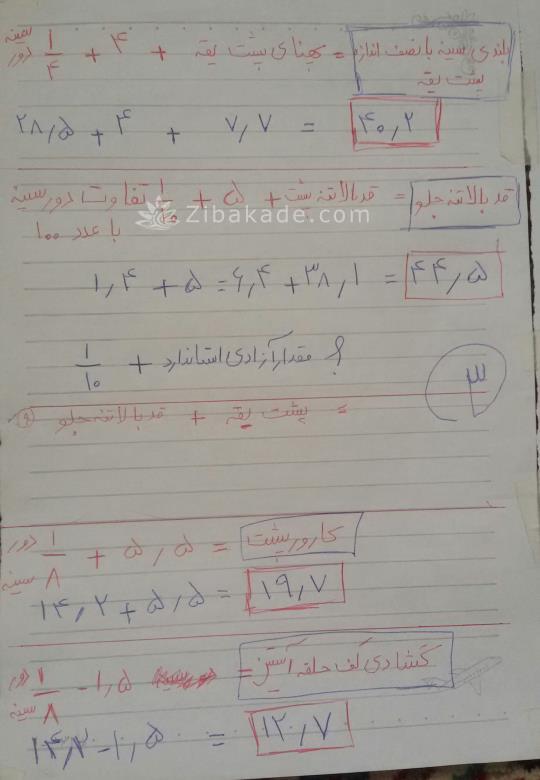 بلندی سینه با نصف اندازه پشت یقه = پهنای پشت یقه + ۴ + ۱/۴ دور سینه
۲۸٫۵ + ۴ + ۷٫۷ = ۴۰٫۲
قد بالاتنه جلو = قد بالاتنه پشت + ۵ + ۱/۱۰ تفاوت دور سینه
با عدد ۱۰۰
Zibakade.com
۱٫۴ + ۵ = ۶٫۴ + ۳۸٫۱ = ۴۴٫۵
؟ مقدار آزادی استاندارد + ۱/۱۰
۳
= پشت یقه + قد بالاتنه جلو
کارور پشت = ۵٫۵ + ۱/۸ دور سینه
۱۴٫۲ + ۵٫۵ = ۱۹٫۷
گشادی کف حلقه آستین = ۱/۸ - ۱٫۵ دور سینه
۱۴٫۲ - ۱٫۵ = ۱۲٫۷